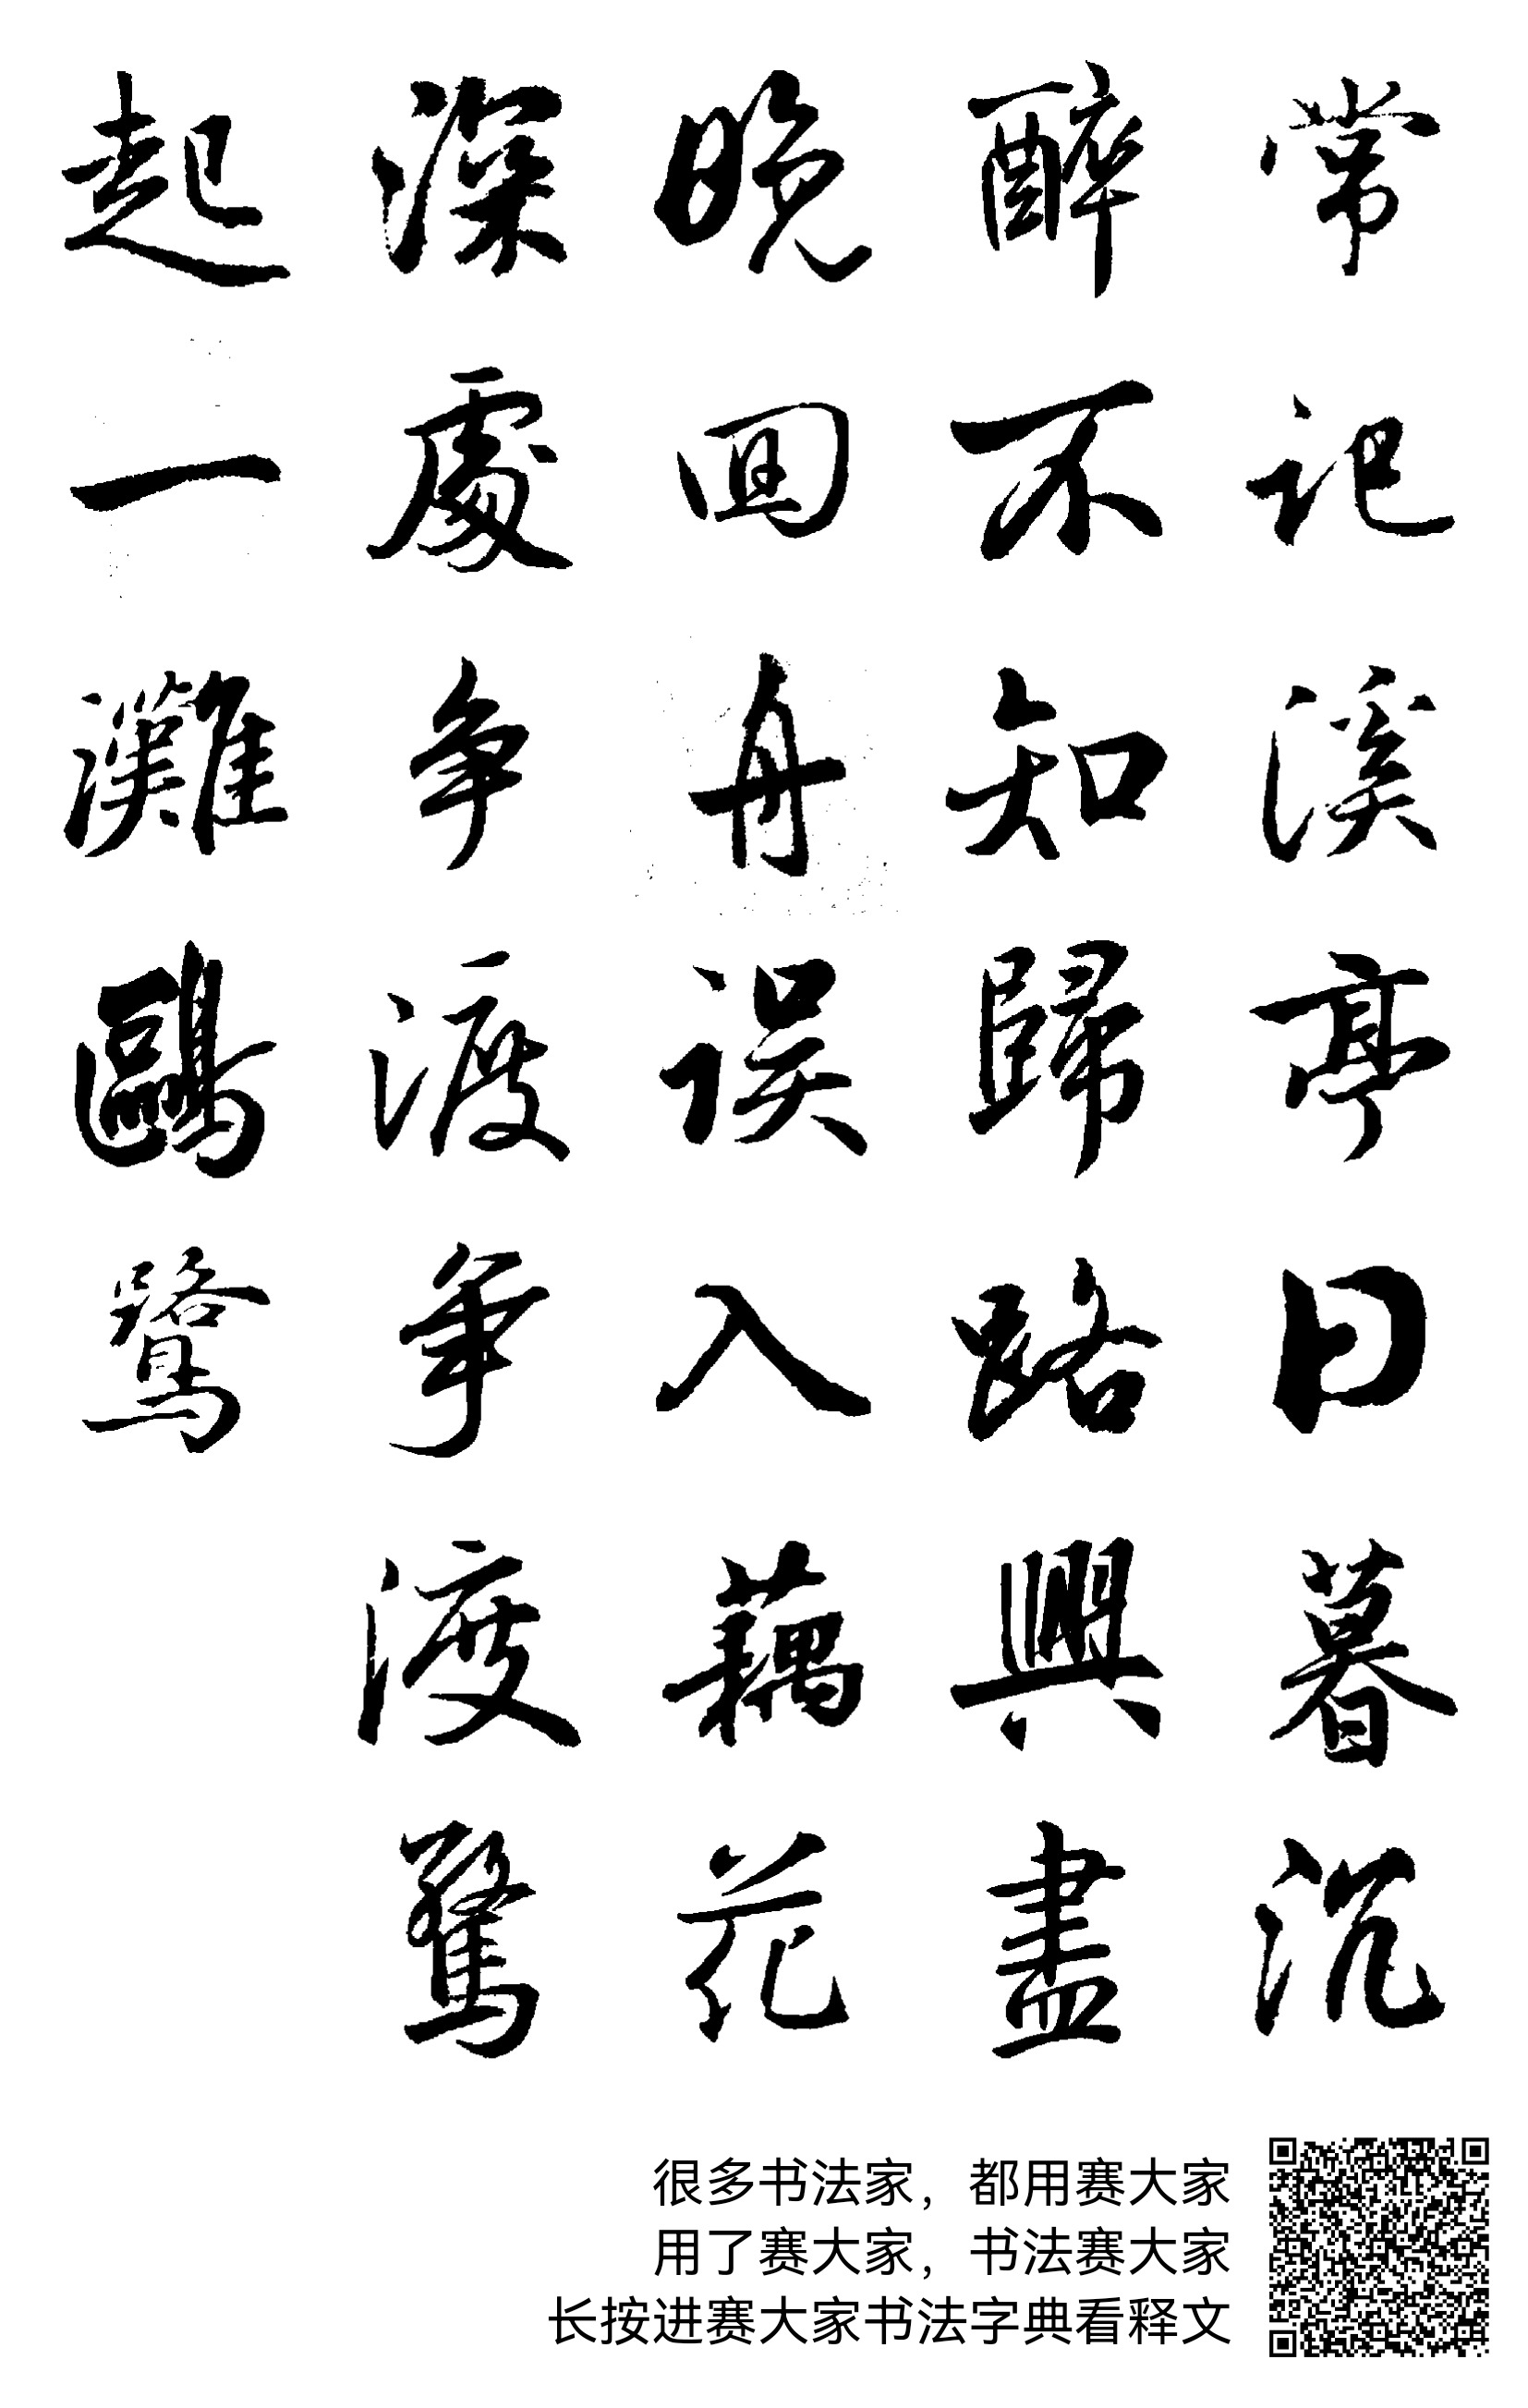 常记溪亭日暮沉
醉不知歸路興盡
晚回舟误入藕花
深處争渡争渡驚
起一灘鷗鷺
很多书法家，都用赛大家
用了赛大家，书法赛大家
长按进赛大家书法字典看释文